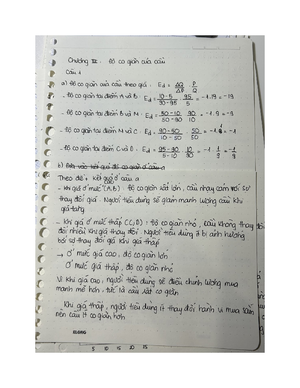 Chương III: Độ co giãn của cầu
Câu 1
a) Độ co giãn của cầu theo giá: Ed = ΔQ/ΔP . P/Q
- Độ co giãn tại điểm A và B: Ed = 10-5/90-95 . 95/5 = -1.19 = -19
- Độ co giãn tại điểm B và N: Ed = 50-10/50-90 . 90/10 = -1.9 = -9
- Độ co giãn tại điểm N và C: Ed = 90-50/10-50 . 50/50 = -1 = -1
- Độ co giãn tại điểm C và D: Ed = 95-90/5-10 . 10/90 = -1 . 1/9 = -1/9
b) Dựa vào kết quả độ co giãn ở câu a
Theo dõi kết quả ở câu a
- Khi giá ở mức (A,B): Độ co giãn rất lớn, cầu nhạy cảm với sự
thay đổi giá. Người tiêu dùng sẽ giảm mạnh lượng cầu khi
giá tăng
- Khi giá ở mức thấp (C;D): Độ co giãn nhỏ, cầu không thay đổi
nhiều khi giá thay đổi. Người tiêu dùng ít bị ảnh hưởng
bởi sự thay đổi giá khi giá thấp
→ Ở mức giá cao, độ co giãn lớn
Ở mức giá thấp, độ co giãn nhỏ
Vì khi giá cao, người tiêu dùng sẽ điều chỉnh lượng mua
mạnh mẽ hơn, tức là cầu rất co giãn
Khi giá thấp, người tiêu dùng ít thay đổi hành vi mua sắm
nên cầu ít co giãn hơn
KLONG
5 10 10 20 15